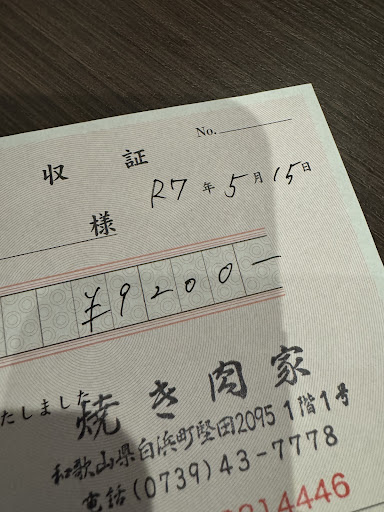 No.
収 証
R7 年 5 月 15 日
様
¥9200-
たしました
焼き肉家
和歌山県白浜町堅田2095 1階1号
電話(0739)43-7778
814446